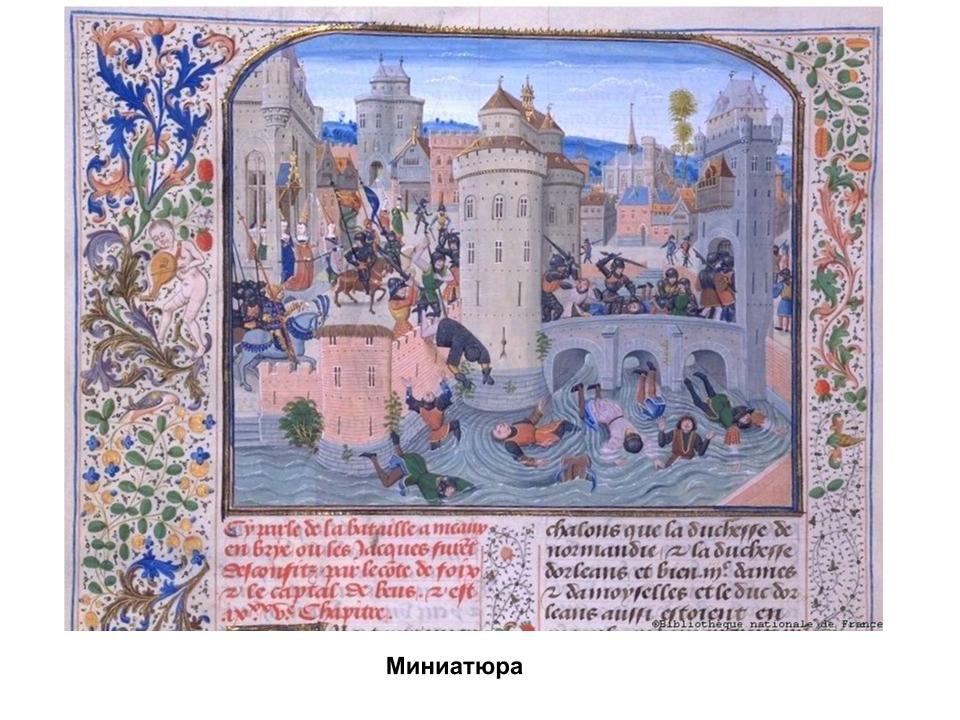 Cy parle de la bataille a meaux
en brye ou les Jacques furēt
desconfitz par le cōte de foix
⁊ le captal de beus. ⁊ est
Chapitre.
chalons que la duchesse de
normandie ⁊ la duchesse
dorleans et bien mᵗ dames
⁊ damoyselles et le duc dor
leans aussi estoient en
©Bibliothèque nationale de France
Миниатюра